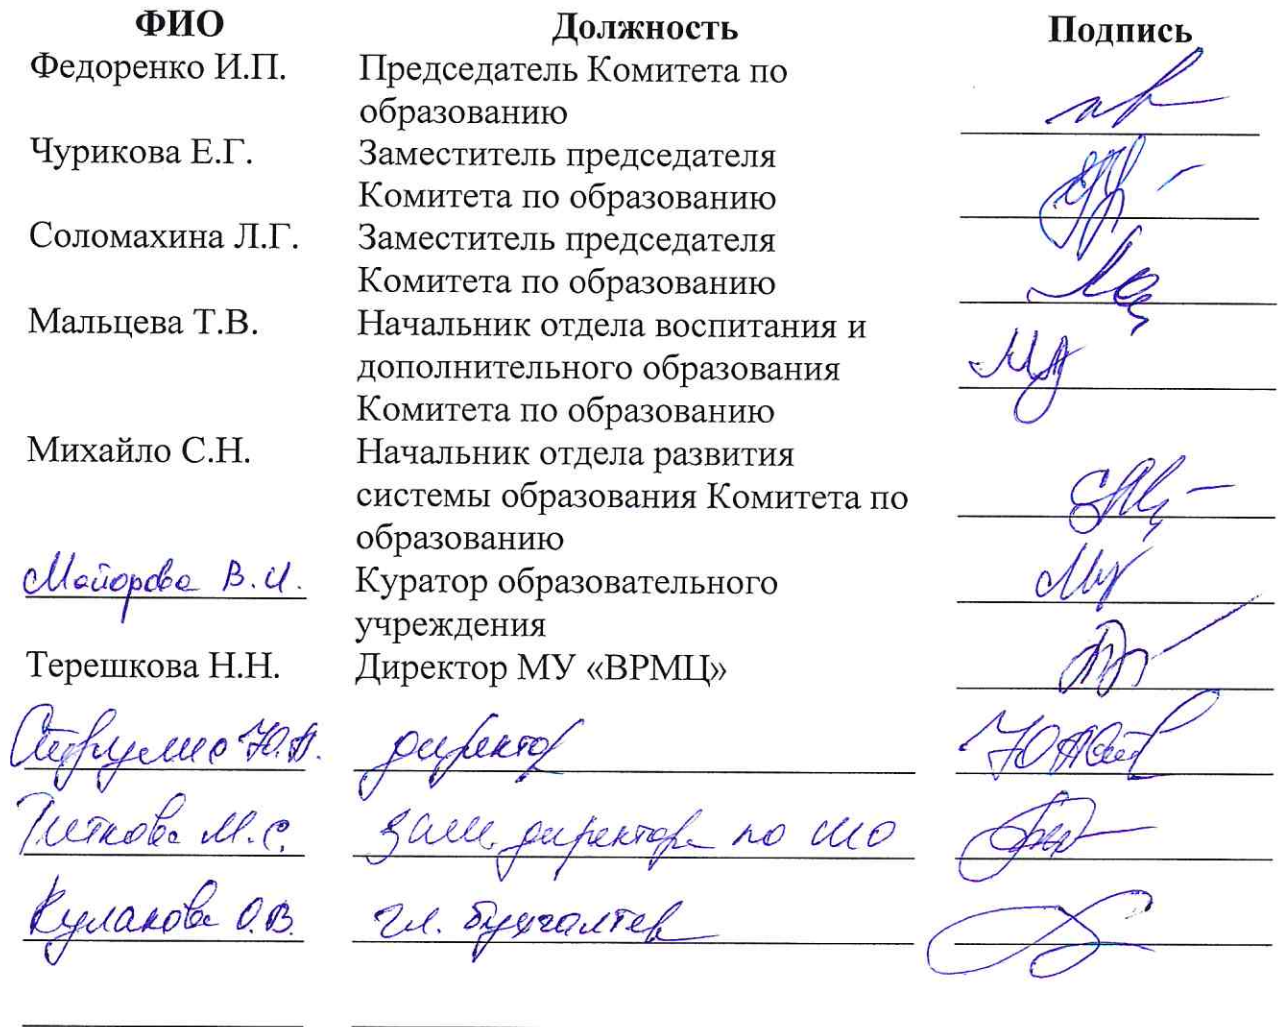 ФИО Должность Подпись
Федоренко И.П. Председатель Комитета по
образованию
Чурикова Е.Г. Заместитель председателя
Комитета по образованию
Соломахина Л.Г. Заместитель председателя
Комитета по образованию
Мальцева Т.В. Начальник отдела воспитания и
дополнительного образования
Комитета по образованию
Михайло С.Н. Начальник отдела развития
системы образования Комитета по
образованию
Майорова В.И. Куратор образовательного
учреждения
Терешкова Н.Н. Директор МУ «ВРМЦ»
директор
Титкова М.С. зам. директора по
Кулакова О.В. гл. бухгалтер